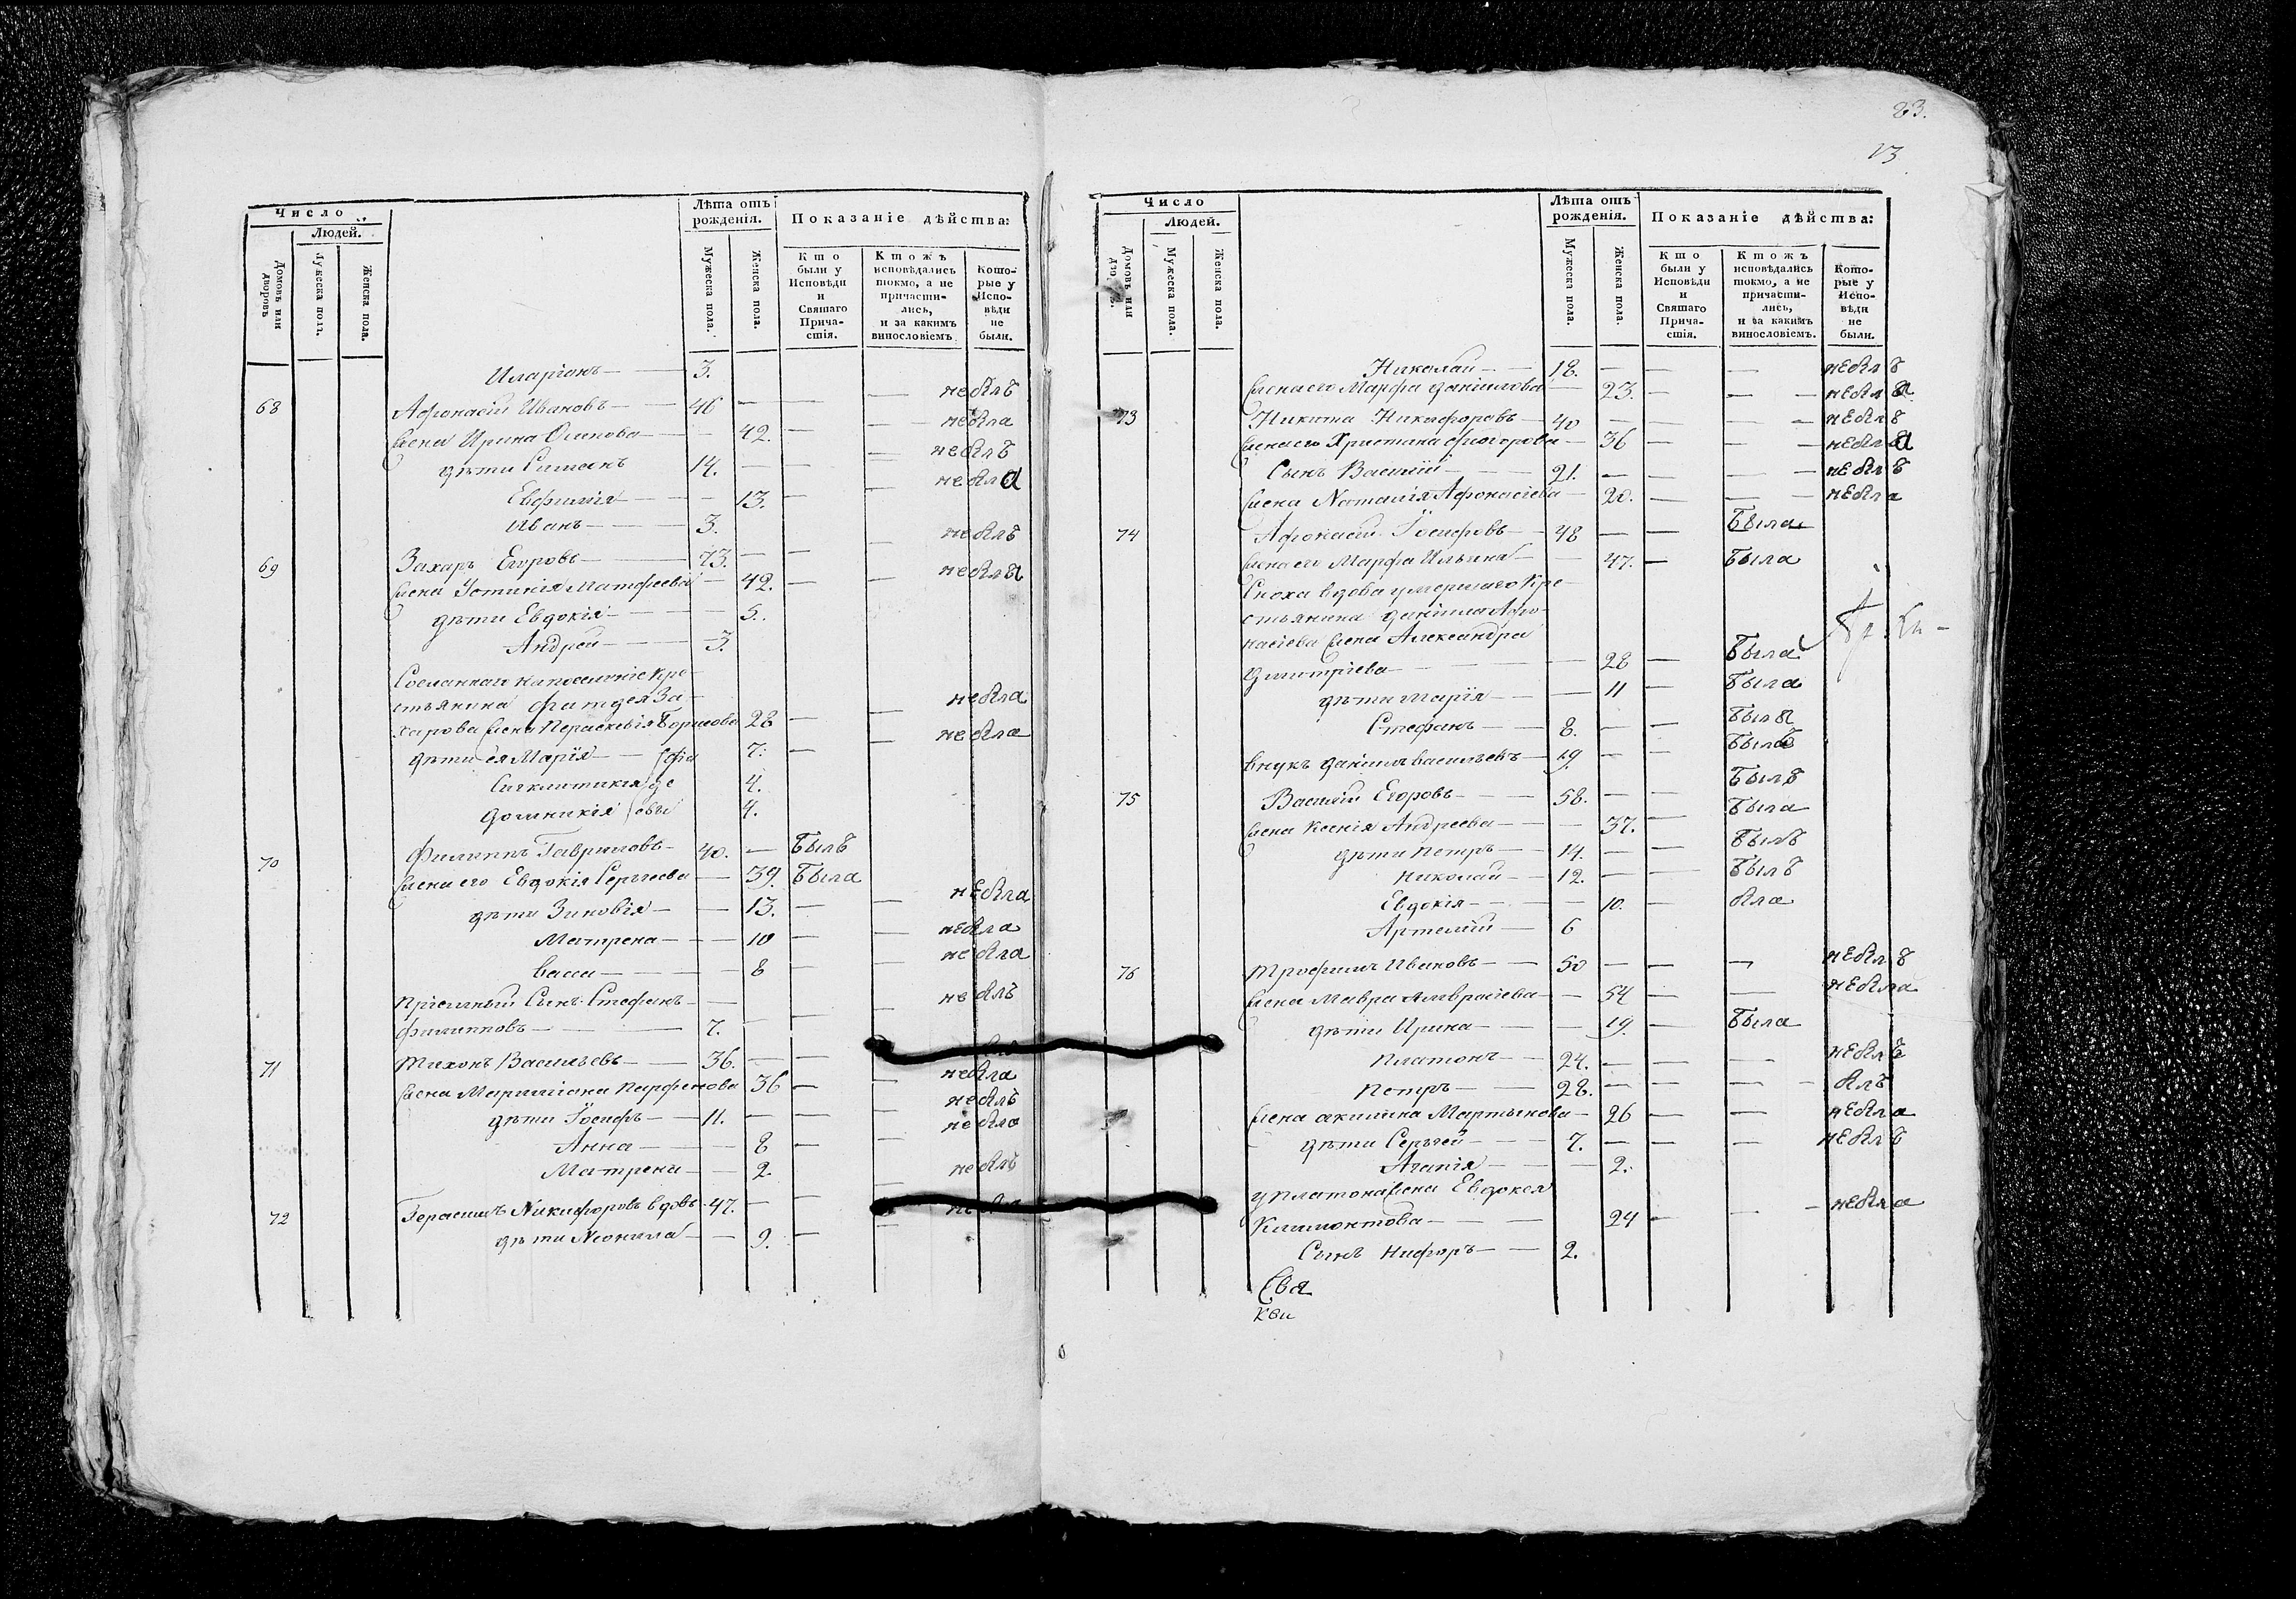 Число
Людей.
Домовъ или дворовъ
Мужеска полъ.
Женска пола.
Лѣта отъ рожденія.
Мужеска пола.
Женска пола.
Показаніе дѣйства:
Кто были у Исповѣди и Святаго Причастія.
Ктожъ исповѣдались токмо, а не причастились, и за какимъ винословіемъ
Которые у Исповѣди не были.
Иларіонъ — 3.
68 Афонасій Ивановъ — 46 — — — небылъ
жена Ирина Осипова — 42. — — небыла
дѣти Симонъ 14. — — — небылъ
Евфимія — 13. — — небыла
Иванъ — 3.
69 Захаръ Егоровъ — 73. — — — небылъ
жена Устинія Матфеева — 42. — — небыла
дѣти Евдокія — 5.
Андрей — 3.
Сосланнаго на поселеніе кре-
стьянина Фаддея За-
харова жена Параскевія Борисова 28 — — небыла
дѣти ея Марія — 7. — — небыла
Синклитикія 4.
Домникія 4.
Фа
де
евы
70 Филиппъ Гавриловъ — 40. — былъ
жена его Евдокія Сергеева — 39. была
дѣти Зиновія — 13. — — небыла
Матрена — 10 — — небыла
Васса — 8 — — небыла
Пріемный Сынъ Стефанъ —
Филипповъ — 7. — — — небылъ
71 Тихонъ Васильевъ — 36. — —
жена Мариміана Парфенова 36 — — небыла
дѣти Іосифъ — 11. — — — небылъ
Анна — 8 — — небыла
Матрена — 2.
72 Герасимъ Никифоровъ вдовъ 47. — — — небылъ
дѣти Неонила — 9. — —
83.
13
Число
Людей.
Домовъ или
Мужеска пола.
Женска пола.
Лѣта отъ рожденія.
Мужеска пола.
Женска пола.
Показаніе дѣйства:
Кто были у Исповѣди и Святаго Причастія.
Ктожъ исповѣдались токмо, а не причастились, и за какимъ винословіемъ.
Которые у Исповѣди не были.
Николай — 18. — — — небылъ
жена его Марфа Даніилова — 23. — — — небыла
73 Никита Никифоровъ — 40 — — — небылъ
жена его Христина Феодорова — 36 — — небыла
Сынъ Василій — 21. — — — небылъ
жена Наталія Афонасіева — 20. — — — небыла
74 Афонасій Іосифовъ — 48 — — была
жена его Марфа Ильина — 47. — была
Сноха вдова умершаго кре-
стьянина Даніила Афо-
насіева жена Александра
Димитріева — 28 — была
дѣти Марія — 11 — была
Стефанъ — 8. — — былъ
внукъ Даніилъ Васильевъ — 19. — — былъ
75 Василій Егоровъ — 58. — — былъ
жена Ксенія Андреева — 37. — была
дѣти Петръ — 14. — — былъ
Николай — 12. — — былъ
Евдокія — 10. — была
Артемій — 6
76 Трофимъ Ивановъ — 50 — — — небылъ
жена Мавра Амвросіева — 54 — — небыла
дѣти Ирина — 19. — была
Платонъ — 24. — — — небылъ
Петръ — 28. — — — былъ
жена Акилина Мартынова — 26 — — небыла
дѣти Сергей — 7. — — — небылъ
Агапія — 2.
у Платона жена Евдокея
Климонтова — 24 — — — небыла
Сынъ Нифоръ — 2.